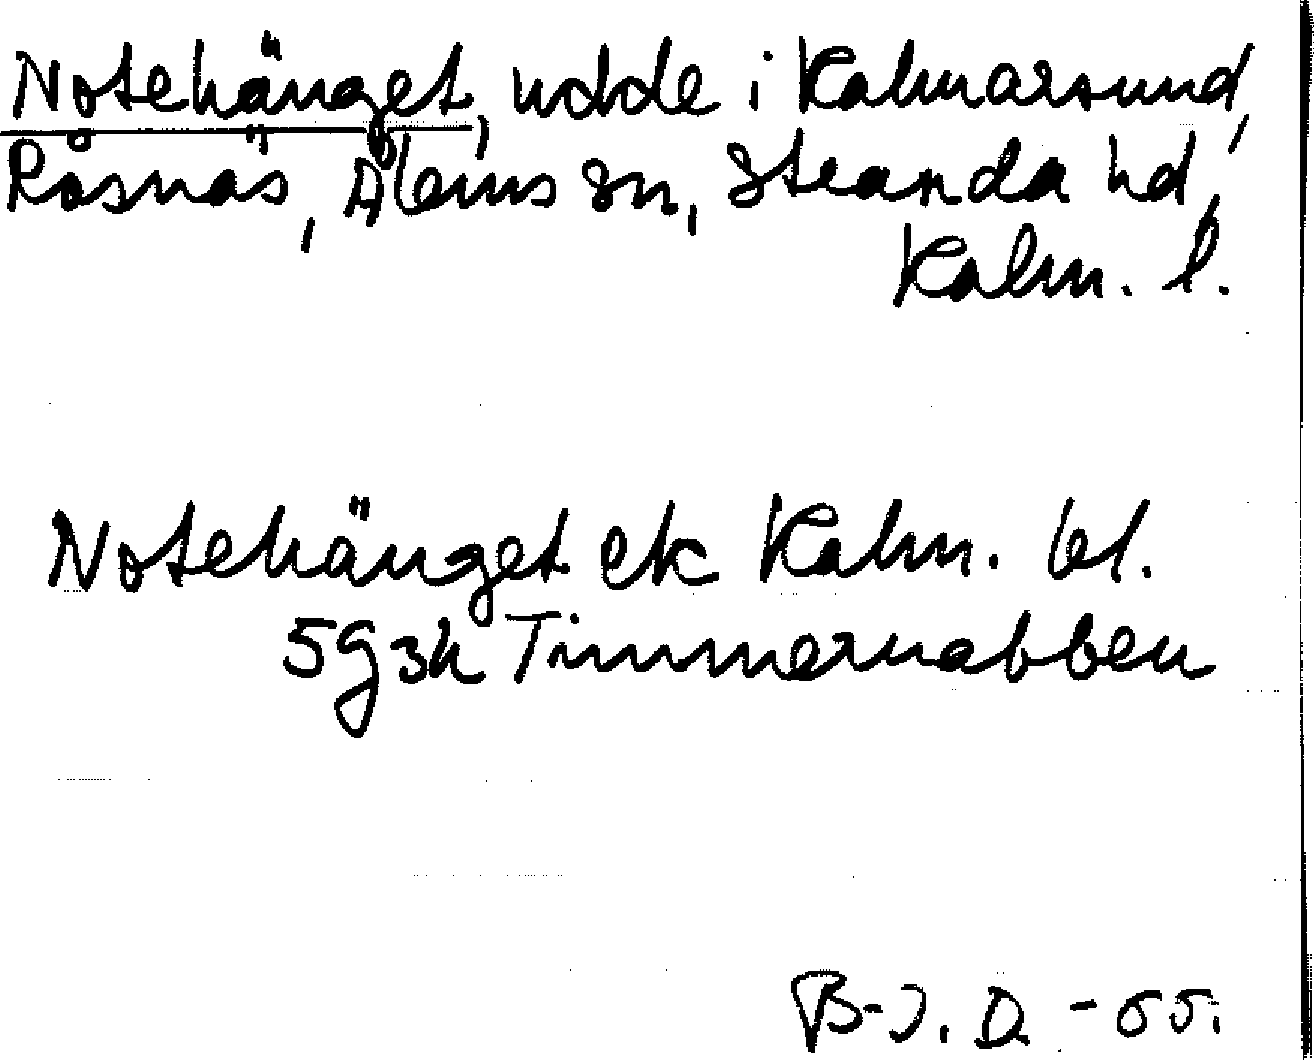 Notehänget, udde i Kalmarsund,
Råsnäs, Ålems sn, Stranda hd,
Kalm. l.
Notehänget ek Kalm. bl.
5g3h Timmernabben
B-J. D. -65.